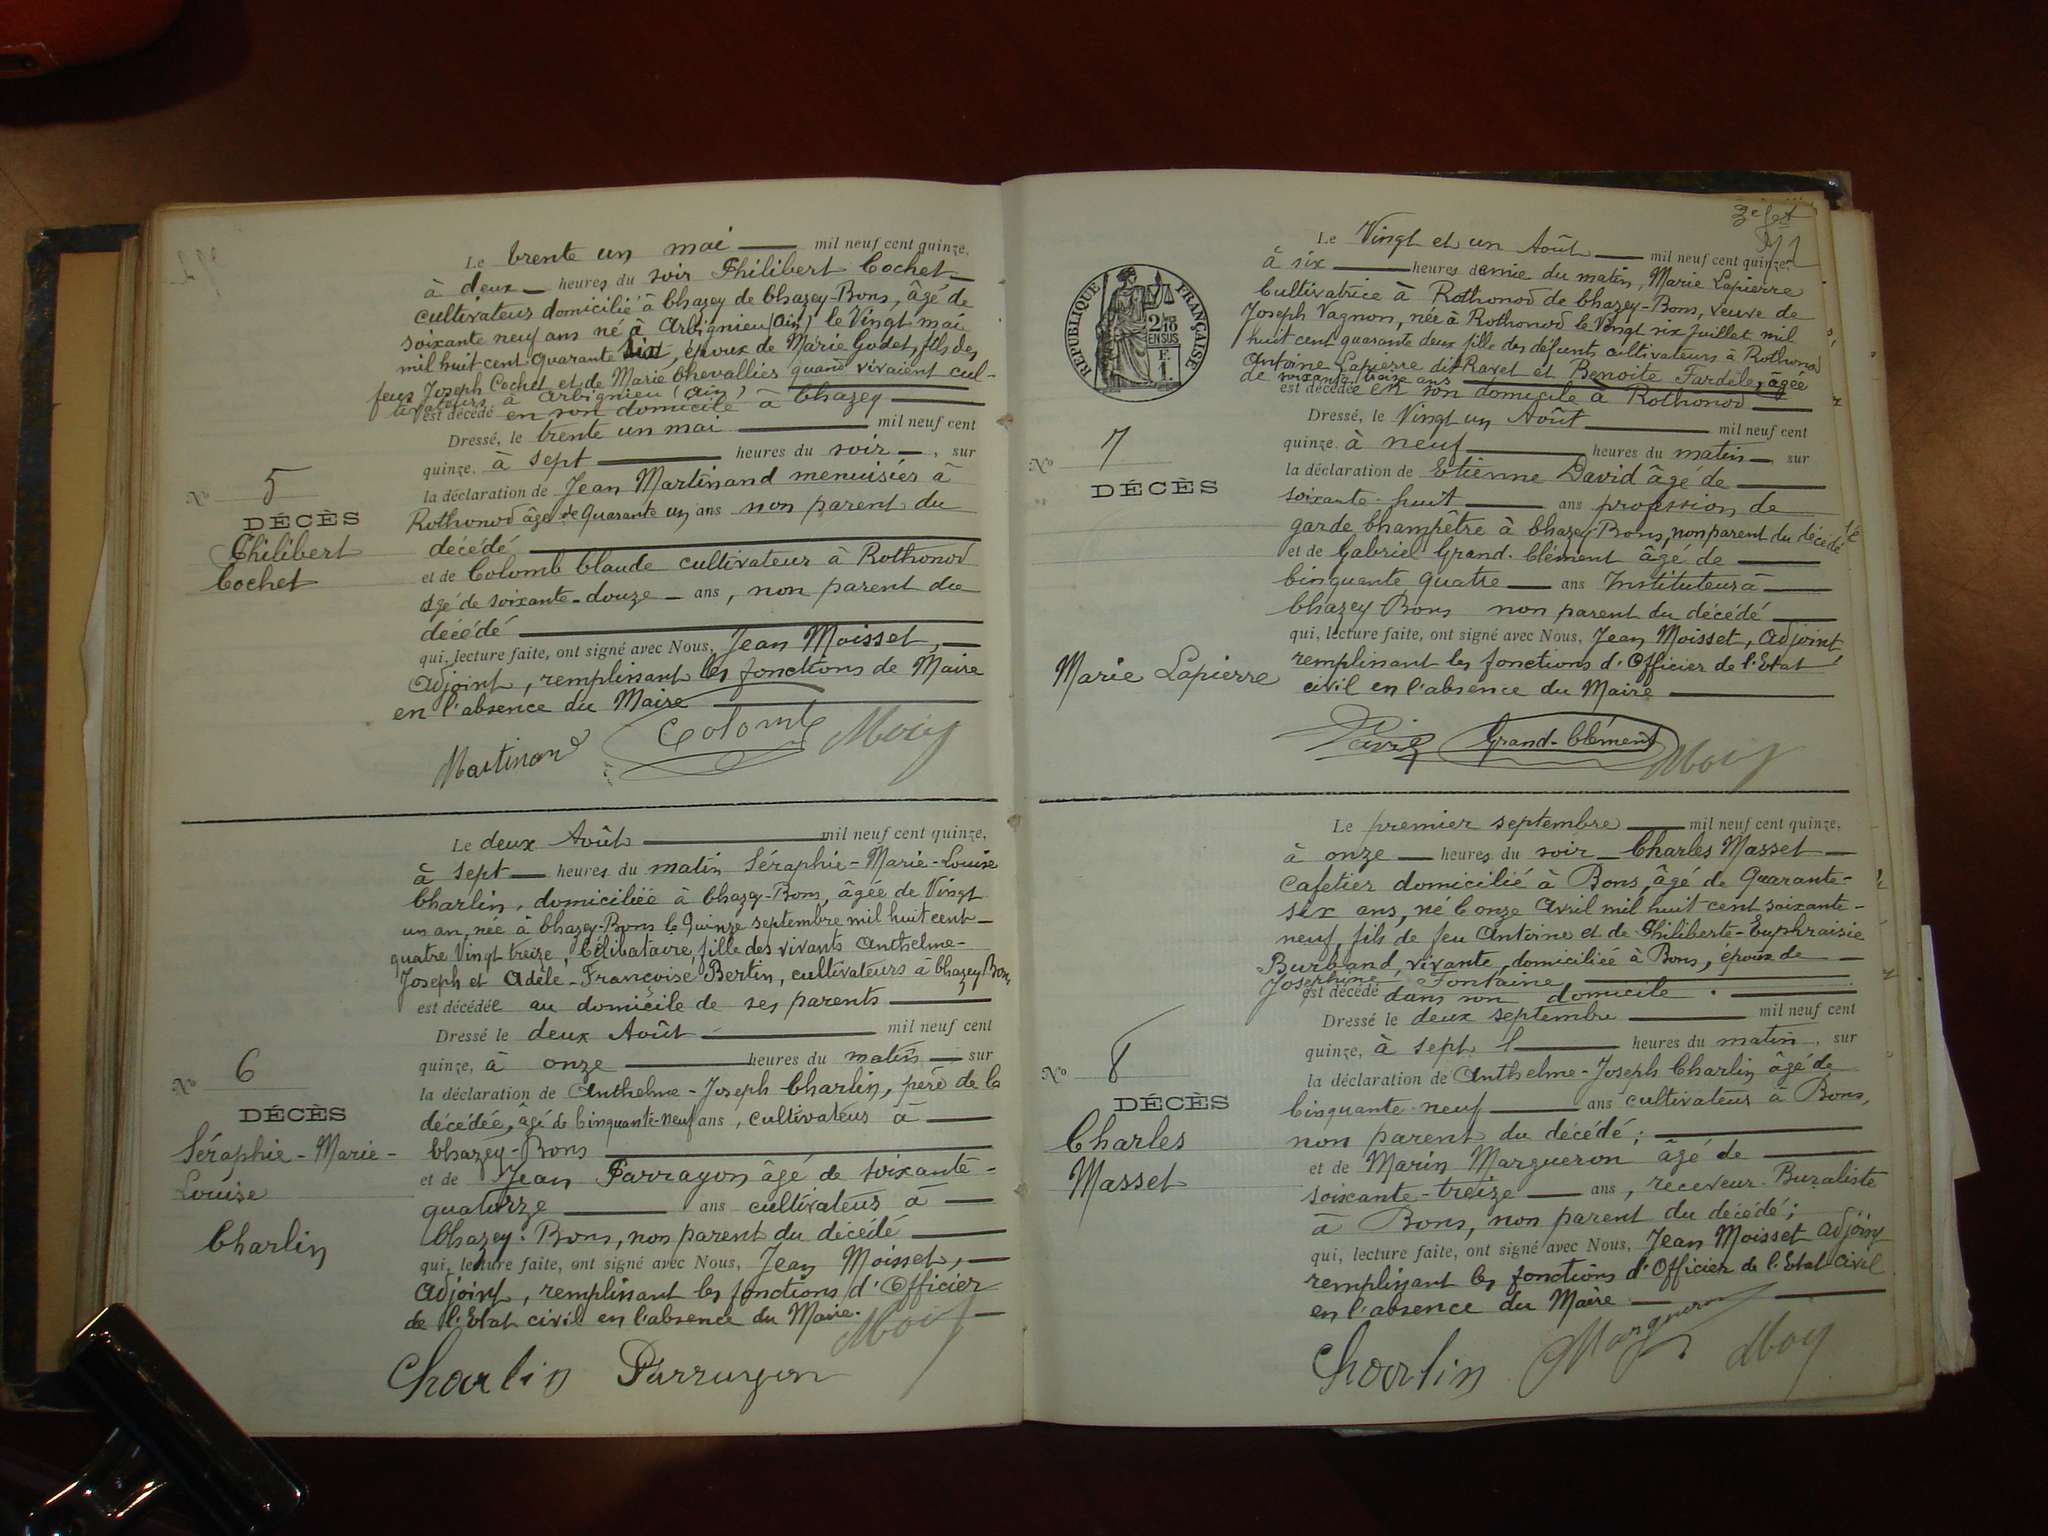 Le trente un mai mil neuf cent quinze,
à deux heures du soir Philibert Cochet
cultivateur domicilié à Chazey de Chazey-Bons, âgé de
soixante neuf ans né à Arbignieu (Ain) le Vingt mai
mil huit cent quarante six, époux de Marie Godet, fils des
feus Joseph Cochet et de Marie Chevallier quand vivaient cul-
tivateurs à Arbignieu (Ain)
est décédé en son domicile à Chazey
Dressé, le trente un mai mil neuf cent
quinze, à sept heures du soir, sur
la déclaration de Jean Martinand menuisier à
Rothonod âgé de Quarante un ans non parent du
décédé
et de Colomb Claude cultivateur à Rothonod
âgé de soixante-douze ans, non parent du
décédé
qui, lecture faite, ont signé avec Nous, Jean Moisset,
Adjoint, remplissant les fonctions de Maire
en l'absence du Maire
Martinand Colomb
No 5
DÉCÈS
Philibert
Cochet
Le deux Août mil neuf cent quinze,
à sept heures du matin Séraphie-Marie-Louise
Charlin, domiciliée à Chazey-Bons, âgée de Vingt
un an, née à Chazey-Bons le Quinze septembre mil huit cent
quatre Vingt treize, Célibataire, fille des vivants Anthelme-
Joseph et Adèle-Françoise Bertin, cultivateurs à Chazey Bons
est décédée au domicile de ses parents
Dressé le deux Août mil neuf cent
quinze, à onze heures du matin sur
la déclaration de Anthelme-Joseph Charlin, père de la
décédée, âgé de Cinquante-neuf ans, cultivateur à
Chazey-Bons
et de Jean Parrayon âgé de soixante-
quatorze ans cultivateur à
Chazey-Bons, non parent du décédé
qui, lecture faite, ont signé avec Nous, Jean Moisset,
Adjoint, remplissant les fonctions d'Officier
de l'Etat civil en l'absence du Maire.
Charlin Parrayon
No 6
DÉCÈS
Séraphie-Marie-
Louise
Charlin
RÉPUBLIQUE FRANÇAISE
2/10
EN SUS
F.
1.
Le Vingt et un Août mil neuf cent quinze,
à six heures demie du matin, Marie Lapierre
Cultivatrice à Rothonod de Chazey-Bons, veuve de
Joseph Vagnon, née à Rothonod le Vingt six juillet mil
huit cent quarante deux fille des défunts cultivateurs à Rothonod
Antoine Lapierre dit Ravet et Benoite Fardèle, âgée
de soixante treize ans
est décédée en son domicile à Rothonod
Dressé, le Vingt un Août mil neuf cent
quinze, à neuf heures du matin, sur
la déclaration de Etienne David âgé de
soixante-huit ans profession de
garde Champêtre à Chazey Bons, non parent du décédé
et de Gabriel Grand-Clément âgé de
Cinquante Quatre ans Instituteur à
Chazey Bons non parent du décédé
qui, lecture faite, ont signé avec Nous, Jean Moisset, Adjoint,
remplissant les fonctions d'Officier de l'Etat
civil en l'absence du Maire
Grand-Clément
No 7
DÉCÈS
Marie Lapierre
Le premier septembre mil neuf cent quinze,
à onze heures du soir Charles Masset
Cafetier domicilié à Bons, âgé de Quarante-
six ans, né le onze Avril mil huit cent soixante-
neuf, fils de feu Antoine et de Philiberte-Euphraisie
Burband, vivante, domiciliée à Bons, époux de
Josephine Fontaine
est décédé dans son domicile.
Dressé le deux septembre mil neuf cent
quinze, à sept heures du matin, sur
la déclaration de Anthelme-Joseph Charlin âgé de
Cinquante-neuf ans cultivateur à Bons,
non parent du décédé;
et de Marin Margueron âgé de
soixante-treize ans, receveur Buraliste
à Bons, non parent du décédé;
qui, lecture faite, ont signé avec Nous, Jean Moisset Adjoint
remplissant les fonctions d'Officier de l'Etat Civil
en l'absence du Maire
Charlin Margueron
No 8
DÉCÈS
Charles
Masset